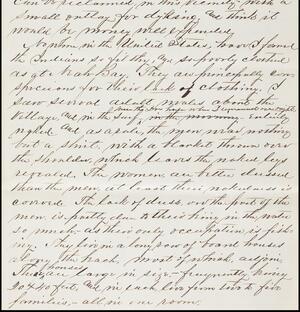 can be reclaimed, in this vicinity with a
small outlay for dyking, and think it
would be money well expended.
Nowhere in the United States, have I found
the Indians so filthy and so poorly clothed
as at Neah Bay. They are principally con-
spicuous for their lack of clothing. I
saw several adult males about the
village and in the surf, in the morning entirely
naked. And as a rule, the men wear nothing
but a shirt, with a blanket thrown over
the shoulder, which leaves the naked legs
exposed. The women are better dressed
than the men, at least their nakedness is
covered. The lack of dress, on the part of the
men is partly due to their being in the water
so much, as their only occupation is fish-
ing. They live in a long row of board houses
along the beach, most of which, adjoin.
These houses are large in size, frequently being
20 x 40 feet, and in each live from two to five
families, all in one room.